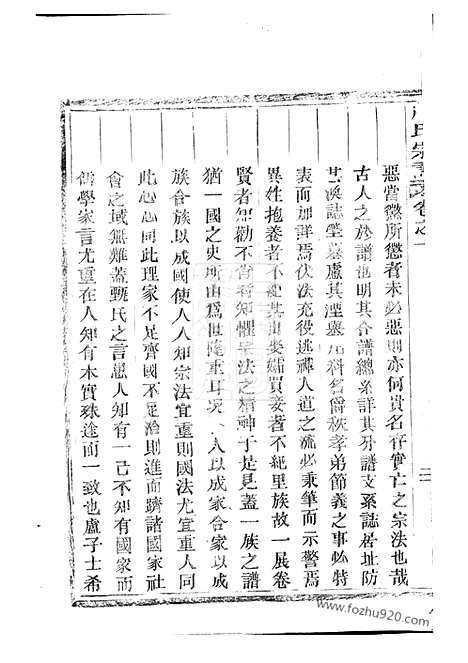 氏宗譜 卷之一
惡當懲所懲者未必惡則亦何貴名存實亡之宗法也哉
古人之於譜也明其合譜總系詳其分譜支系誌居址防
其渙誌塋墓慮其湮舉凡科名爵秩孝弟節義之事必特
表而加詳焉伏法充役逃禪入道之流必秉筆而示警焉
異姓抱養者不紀其出娶孀買妾者不紀里族故一展卷
賢者知勸不肖者知懼宗法之精神于是見蓋一族之譜
猶一國之史所由為世隆重耳况 人以成家合家以成
族合族以成國使人人知宗法宜重則國法尤宜重人同
此心心同此理家不足齊國不足治則進而躋諸國家社
會之域無難蓋甄氏之言愚人知有一己不知有國家而
儒學家言尤重在人知有本實殊途而一致也盧子士希
二
www.fozhu920.com